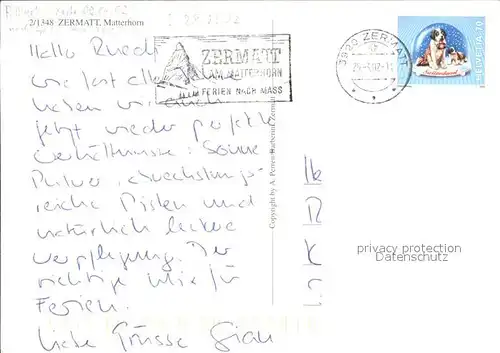 2/1348 ZERMATT, Matterhorn
ZERMATT
AM MATTERHORN
FERIEN NACH MASS
3920 ZERMATT
HELVETIA 70
Hallo Ruedi
wie fast alle
haben wir auch
jetzt wieder perfekte
Verhältnisse: Sonne
Pulver, abwechslungs-
reiche Pisten und
natürlich leckere
Verpflegung. Der
richtige Mix für
Ferien.
Liebe Grüsse Gian
Copyright by A. Perren-Barberini, Zermatt
privacy protection
Datenschutz